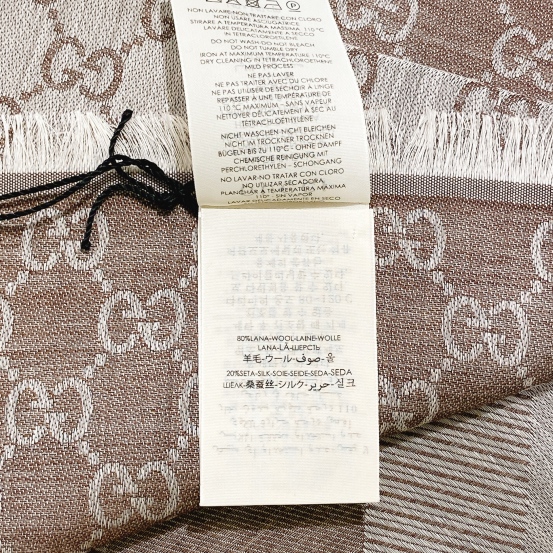 NON LAVARE-NON TRATTARE CON CLORO
NON USARE ASCIUGATRICE
STIRARE A TEMPERATURA MASSIMA 110°C
LAVARE DELICATAMENTE A SECCO
IN TETRACLOROETILENE
DO NOT WASH-DO NOT BLEACH
DO NOT TUMBLE DRY
IRON AT MAXIMUM TEMPERATURE 110°C
DRY CLEANING IN TETRACHLOROETHENE
MILD PROCESS
NE PAS LAVER
NE PAS TRAITER AVEC DU CHLORE
NE PAS UTILISER DE SÉCHOIR À LINGE
REPASSER À UNE TEMPÉRATURE DE
110 °C MAXIMUM – SANS VAPEUR
NETTOYER DÉLICATEMENT À SEC AU
TÉTRACHLOROÉTHYLÈNE
NICHT WASCHEN-NICHT BLEICHEN
NICHT IM TROCKNER TROCKNEN
BÜGELN BIS ZU 110°C - OHNE DAMPF
CHEMISCHE REINIGUNG MIT
PERCHLORETHYLEN - SCHONGANG
NO LAVAR-NO TRATAR CON CLORO
NO UTILIZAR SECADORA
PLANCHAR A TEMPERATURA MÁXIMA
110° - SIN VAPOR
LAVAR DELICADAMENTE EN SECO
80%LANA-WOOL-LAINE-WOLLE
LANA-LÃ-ШЕРСТЬ
羊毛-ウール-صوف-울
20%SETA-SILK-SOIE-SEIDE-SEDA-SEDA
ШЕЛК-桑蚕丝-シルク-حرير-실크